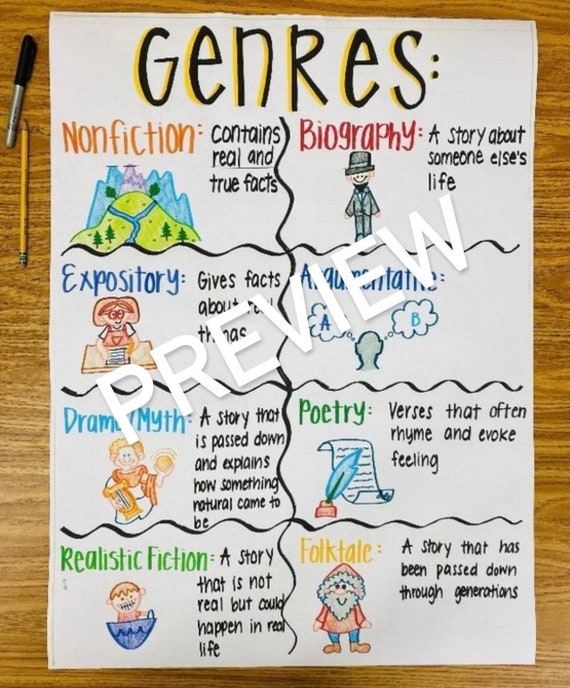 GENRES:
Nonfiction: contains
real and
true facts
Biography: A story about
someone else's
life
Expository: Gives facts
about real
things
Argumentative:
A
B
Drama/Myth: A story that
is passed down
and explains
how something
natural came to
be
Poetry: Verses that often
rhyme and evoke
feeling
Realistic Fiction: A story
that is not
real but could
happen in real
life
Folktale: A story that has
been passed down
through generations
PREVIEW